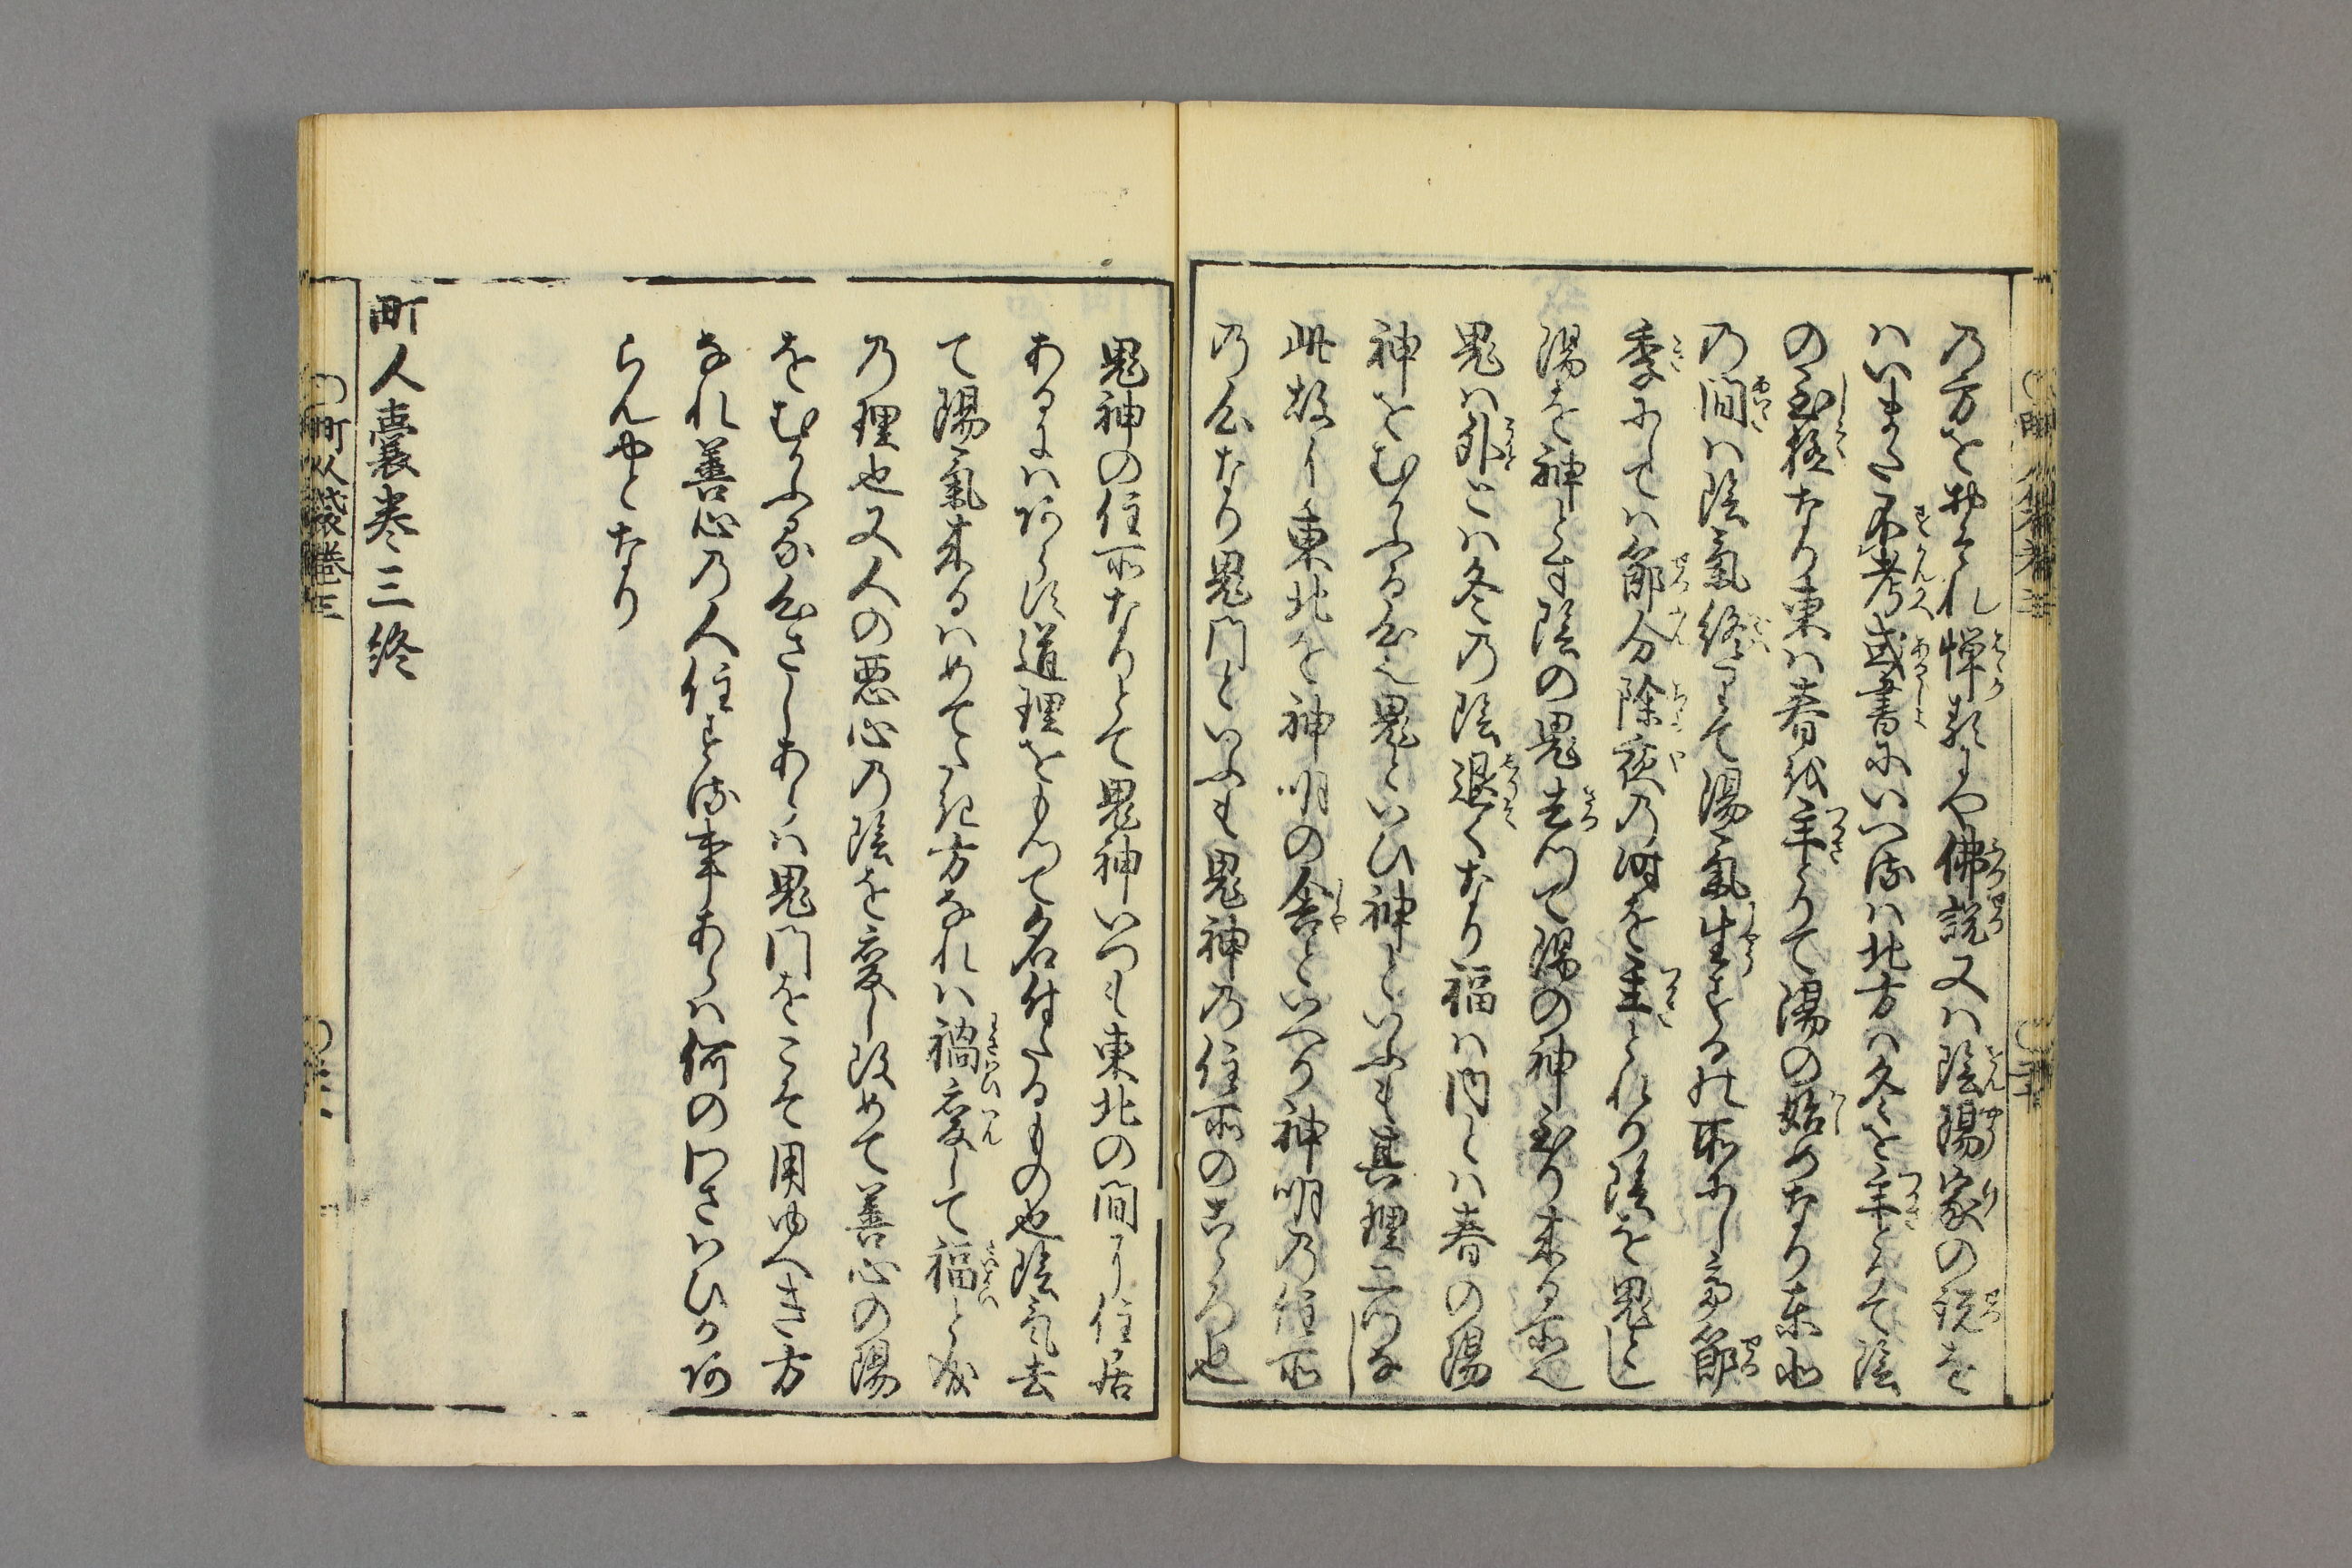 乃方をおそれ憚類にや佛説又ハ陰陽家の説を
ハいまた不考或書にいへるハ北方ハ冬を主とりて陰
の至極なり東ハ春を主とりて陽の始めなり東北
乃間ハ陰氣終りて陽氣生する所にして節
季にしてハ節分除夜乃時を主とれり陰を鬼とし
陽を神とす陰の鬼去つて陽の神至り来る所也
鬼ハ外とハ冬乃陰退くなり福ハ内とハ春の陽
神をむかふる心也鬼といひ神といふも其理二つな
此故に東北を神明の舎といへり神明乃住所
乃心なり鬼門といふも鬼神乃住所のこゝろ也
鬼神の住所なりとて鬼神いつも東北の間に住居
あるにハあらす道理をもつて名付たるもの也陰気去
て陽氣来るハめてたき方なれハ禍変して福と成
乃理也又人の悪心乃陰を変し改めて善心の陽
をむかふる心さしあらハ鬼門をこそ用ゆへき方
なれ善心乃人住する事あらハ何のわさハひかあ
らんやとなり
町人囊巻三終
町人袋巻三